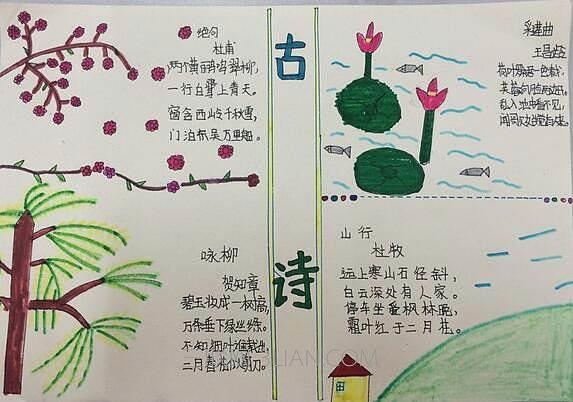 绝句
杜甫
两个黄鹂鸣翠柳，
一行白鹭上青天。
窗含西山岭千秋雪，
门泊东吴万里船。
古
诗
采莲曲
王昌龄
荷叶罗裙一色裁，
芙蓉向脸两边开。
乱入池中看不见，
闻歌始觉有人来。
咏柳
贺知章
碧玉妆成一树高，
万条垂下绿丝绦。
不知细叶谁裁出，
二月春风似剪刀。
山行
杜牧
远上寒山石径斜，
白云深处有人家。
停车坐爱枫林晚，
霜叶红于二月花。